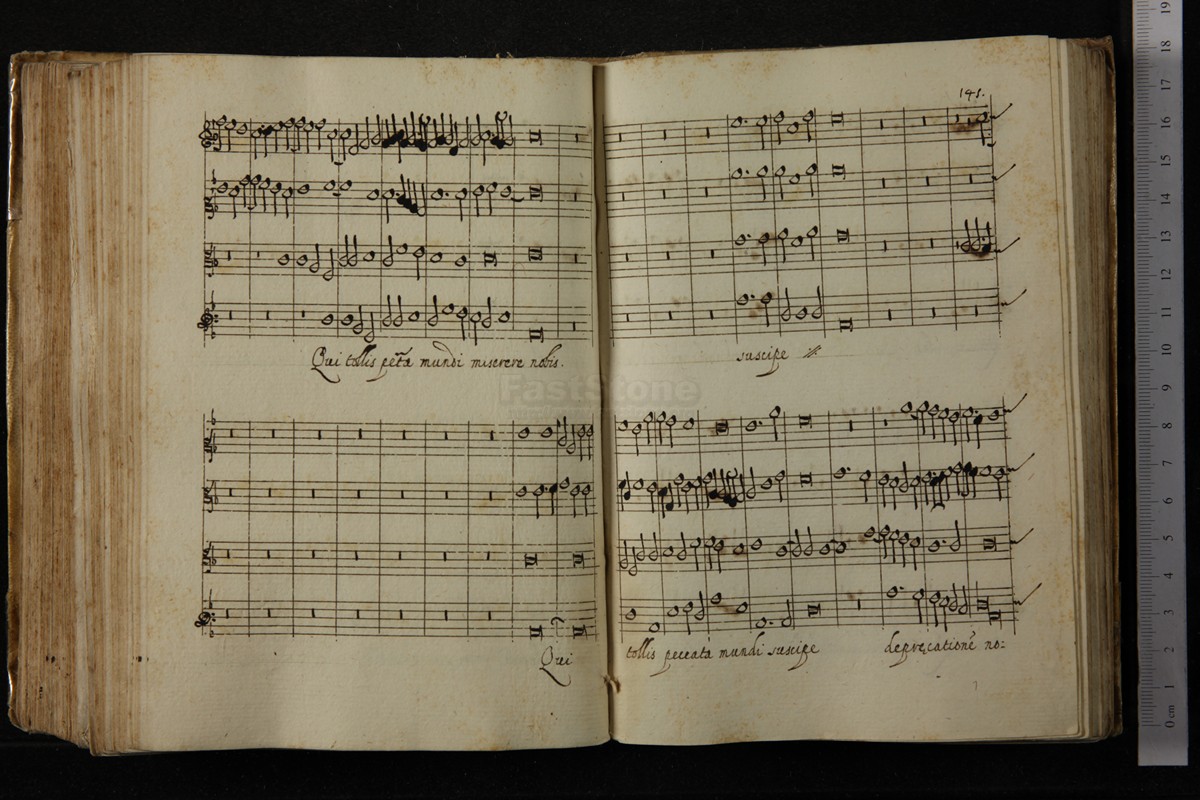 141.
Qui tollis pctā mundi miserere nobis.
suscipe
Qui
tollis peccata mundi suscipe deprecationē no:
FastStone
0 cm 1 2 3 4 5 6 7 8 9 10 11 12 13 14 15 16 17 18 19